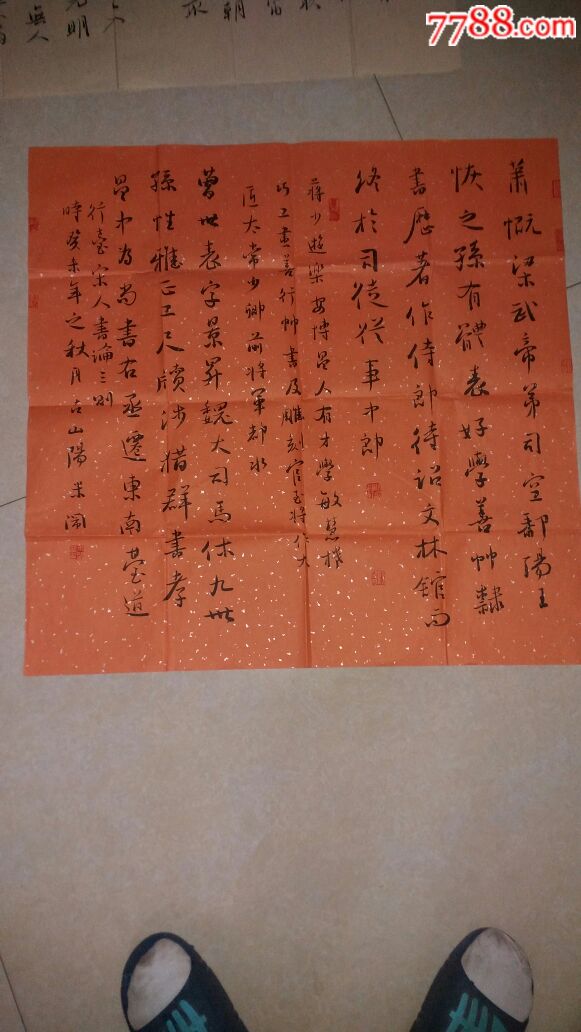 7788.com
萧慨梁武帝弟司空鄱陽王
恢之孫有體表好學善艸隸
書歷著作侍郎待詔文林館而
終於司徒從事中郎
蔣少遊樂安博昌人有才學敏慧機
巧工畫善行艸書及雕刻官至將作大
匠太常少卿前將軍都水
曹世表字景昇魏大司馬休九世
孫性雅正工尺牘涉猎群書孝
昌中为尚書右丞遷東南道
行臺宋人書論三则
時癸未年之秋月古山陽米闹
無人
光明
朝